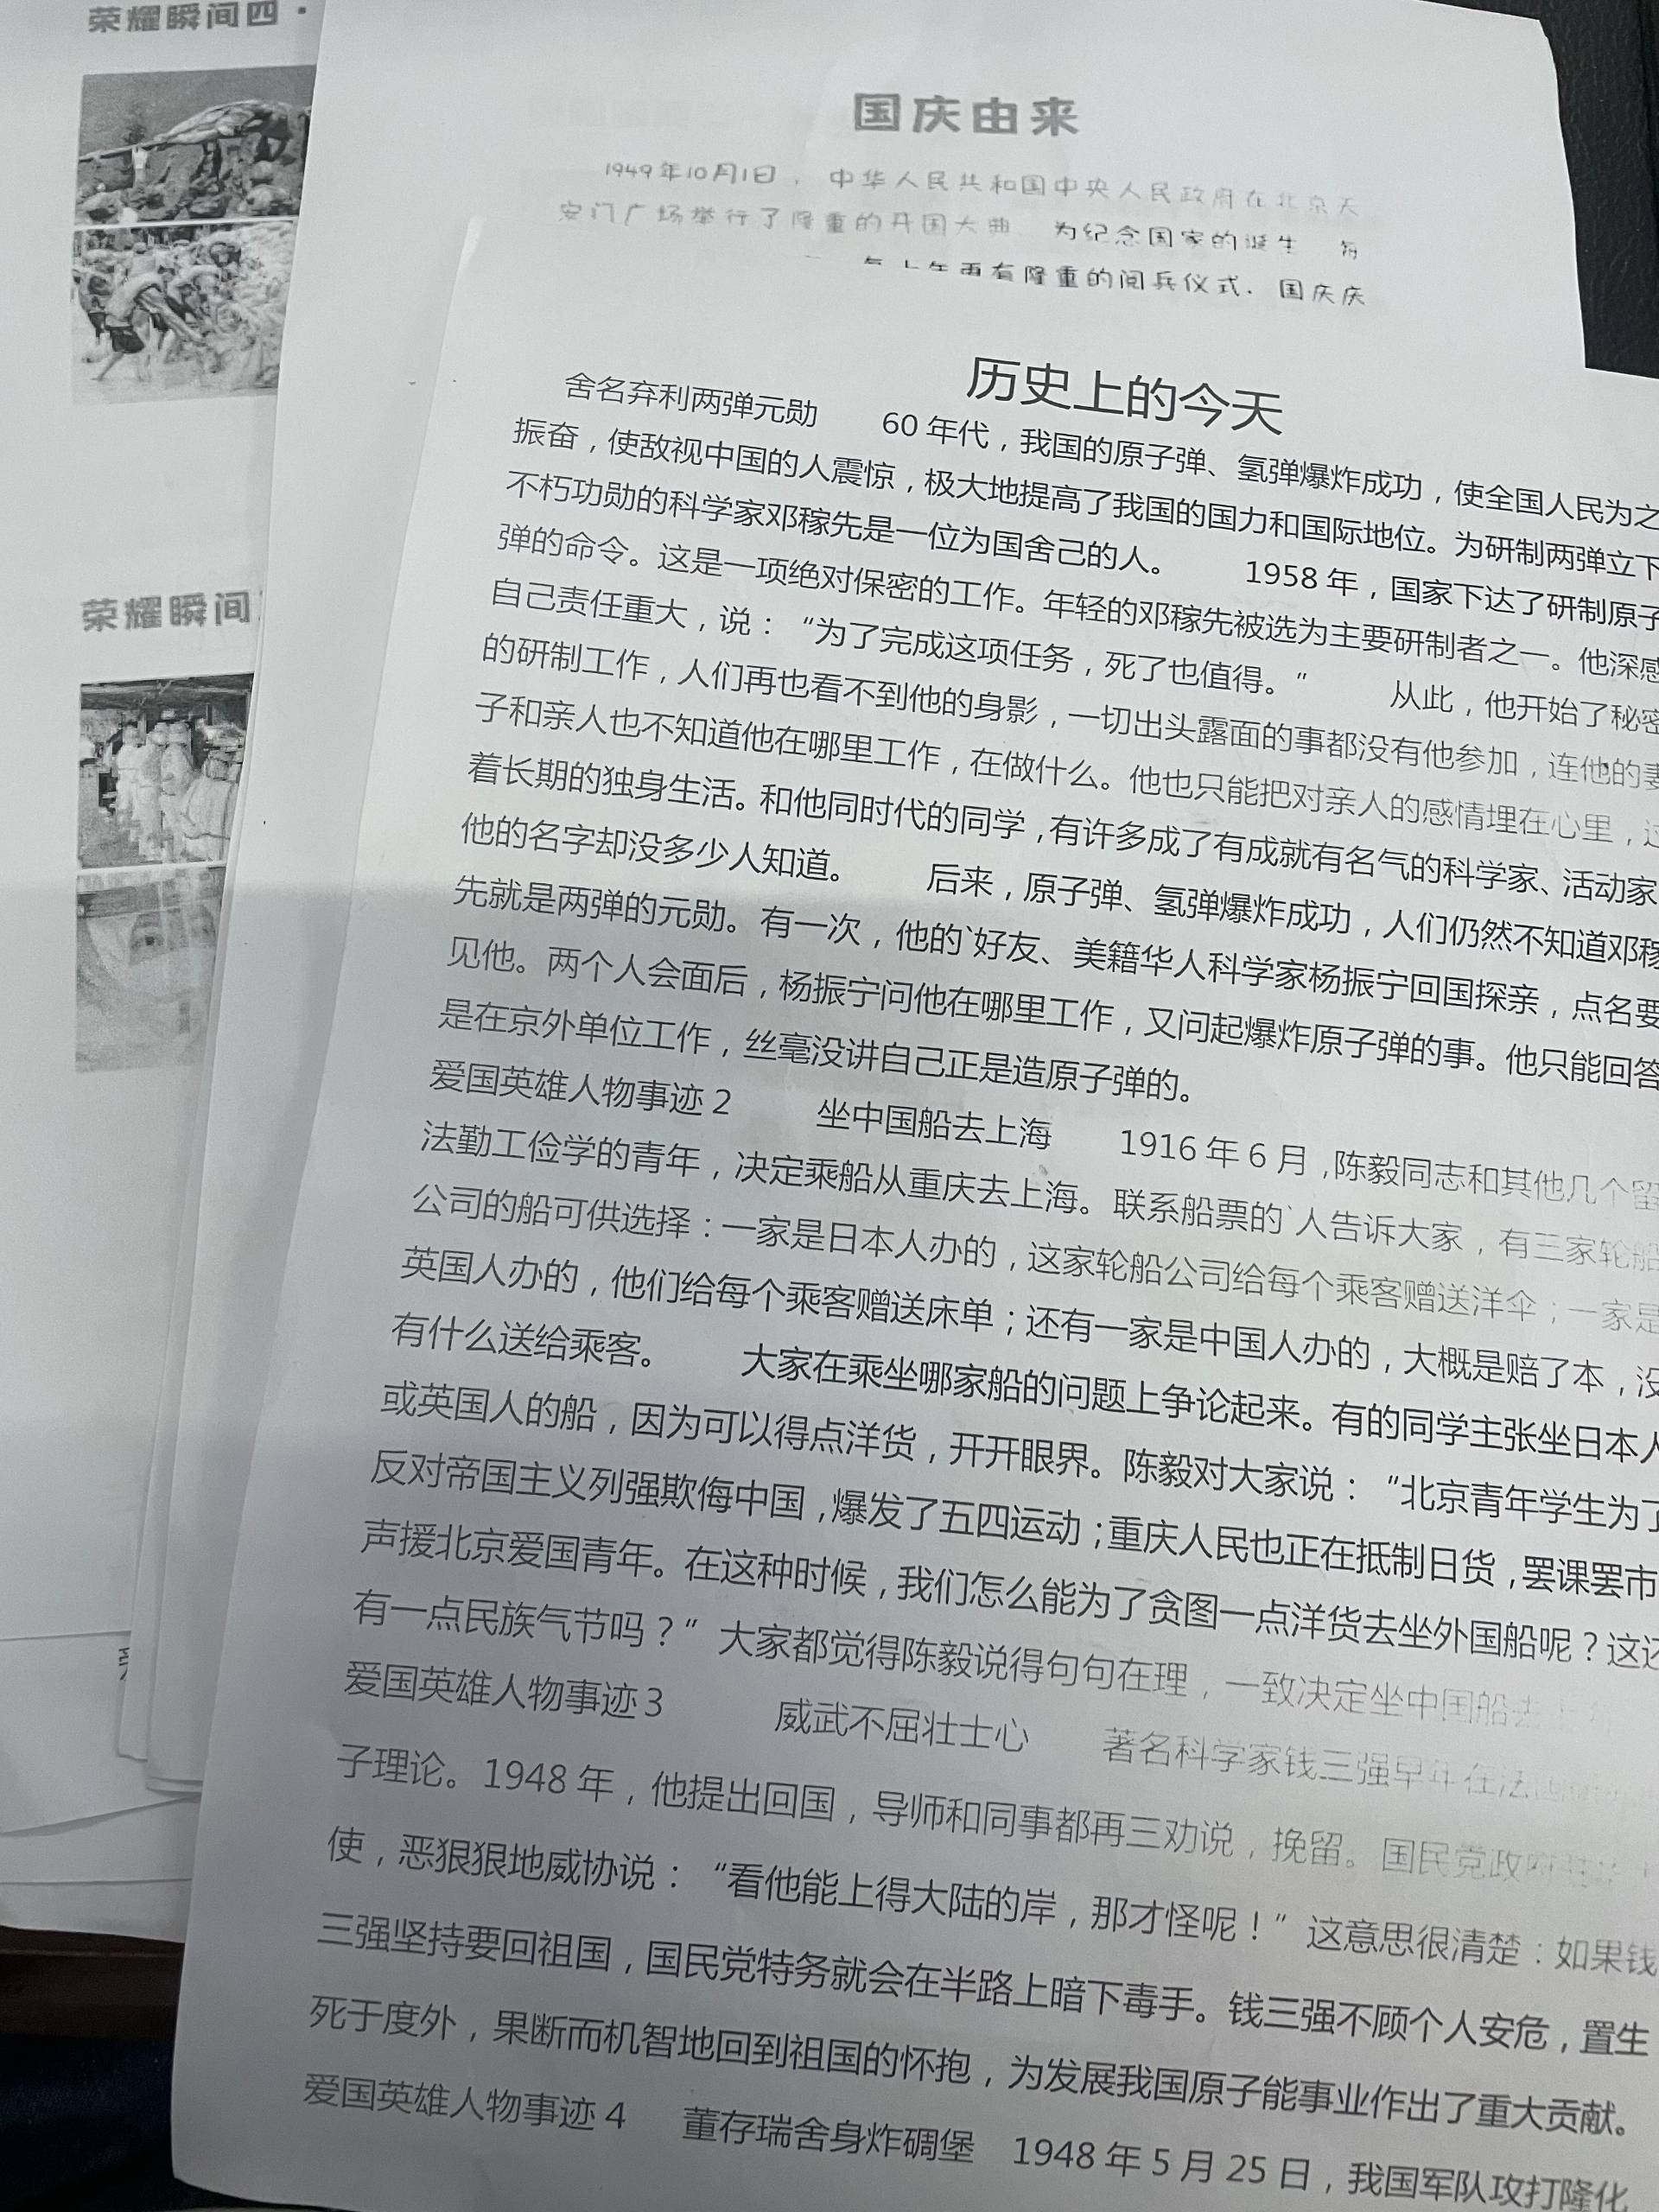 荣耀瞬间四·
荣耀瞬间
国庆由来
1949年10月1日，中华人民共和国中央人民政府在北京天
安门广场举行了隆重的开国大典 为纪念国家的诞生 每
有隆重的阅兵仪式. 国庆庆
历史上的今天
舍名弃利两弹元勋 60年代，我国的原子弹、氢弹爆炸成功，使全国人民为之
振奋，使敌视中国的人震惊，极大地提高了我国的国力和国际地位。为研制两弹立下
不朽功勋的科学家邓稼先是一位为国舍己的人。 1958年，国家下达了研制原子
弹的命令。这是一项绝对保密的工作。年轻的邓稼先被选为主要研制者之一。他深感
自己责任重大，说：“为了完成这项任务，死了也值得。” 从此，他开始了秘密
的研制工作，人们再也看不到他的身影，一切出头露面的事都没有他参加，连他的妻
子和亲人也不知道他在哪里工作，在做什么。他也只能把对亲人的感情埋在心里，过
着长期的独身生活。和他同时代的同学，有许多成了有成就有名气的科学家、活动家
他的名字却没多少人知道。 后来，原子弹、氢弹爆炸成功，人们仍然不知道邓稼
先就是两弹的元勋。有一次，他的`好友、美籍华人科学家杨振宁回国探亲，点名要
见他。两个人会面后，杨振宁问他在哪里工作，又问起爆炸原子弹的事。他只能回答
是在京外单位工作，丝毫没讲自己正是造原子弹的。
爱国英雄人物事迹2 坐中国船去上海 1916年6月，陈毅同志和其他几个留
法勤工俭学的青年，决定乘船从重庆去上海。联系船票的`人告诉大家，有三家轮船
公司的船可供选择：一家是日本人办的，这家轮船公司给每个乘客赠送洋伞；一家是
英国人办的，他们给每个乘客赠送床单；还有一家是中国人办的，大概是赔了本，没
有什么送给乘客。 大家在乘坐哪家船的问题上争论起来。有的同学主张坐日本人
或英国人的船，因为可以得点洋货，开开眼界。陈毅对大家说：“北京青年学生为了
反对帝国主义列强欺侮中国，爆发了五四运动；重庆人民也正在抵制日货，罢课罢市
声援北京爱国青年。在这种时候，我们怎么能为了贪图一点洋货去坐外国船呢？这还
有一点民族气节吗？”大家都觉得陈毅说得句句在理，一致决定坐中国船去
爱国英雄人物事迹3 威武不屈壮士心 著名科学家钱三强早年在法
子理论。1948年，他提出回国，导师和同事都再三劝说，挽留。国民党政府
使，恶狠狠地威协说：“看他能上得大陆的岸，那才怪呢！”这意思很清楚：如果钱
三强坚持要回祖国，国民党特务就会在半路上暗下毒手。钱三强不顾个人安危，置生
死于度外，果断而机智地回到祖国的怀抱，为发展我国原子能事业作出了重大贡献。
爱国英雄人物事迹4 董存瑞舍身炸碉堡 1948年5月25日，我国军队攻打隆化